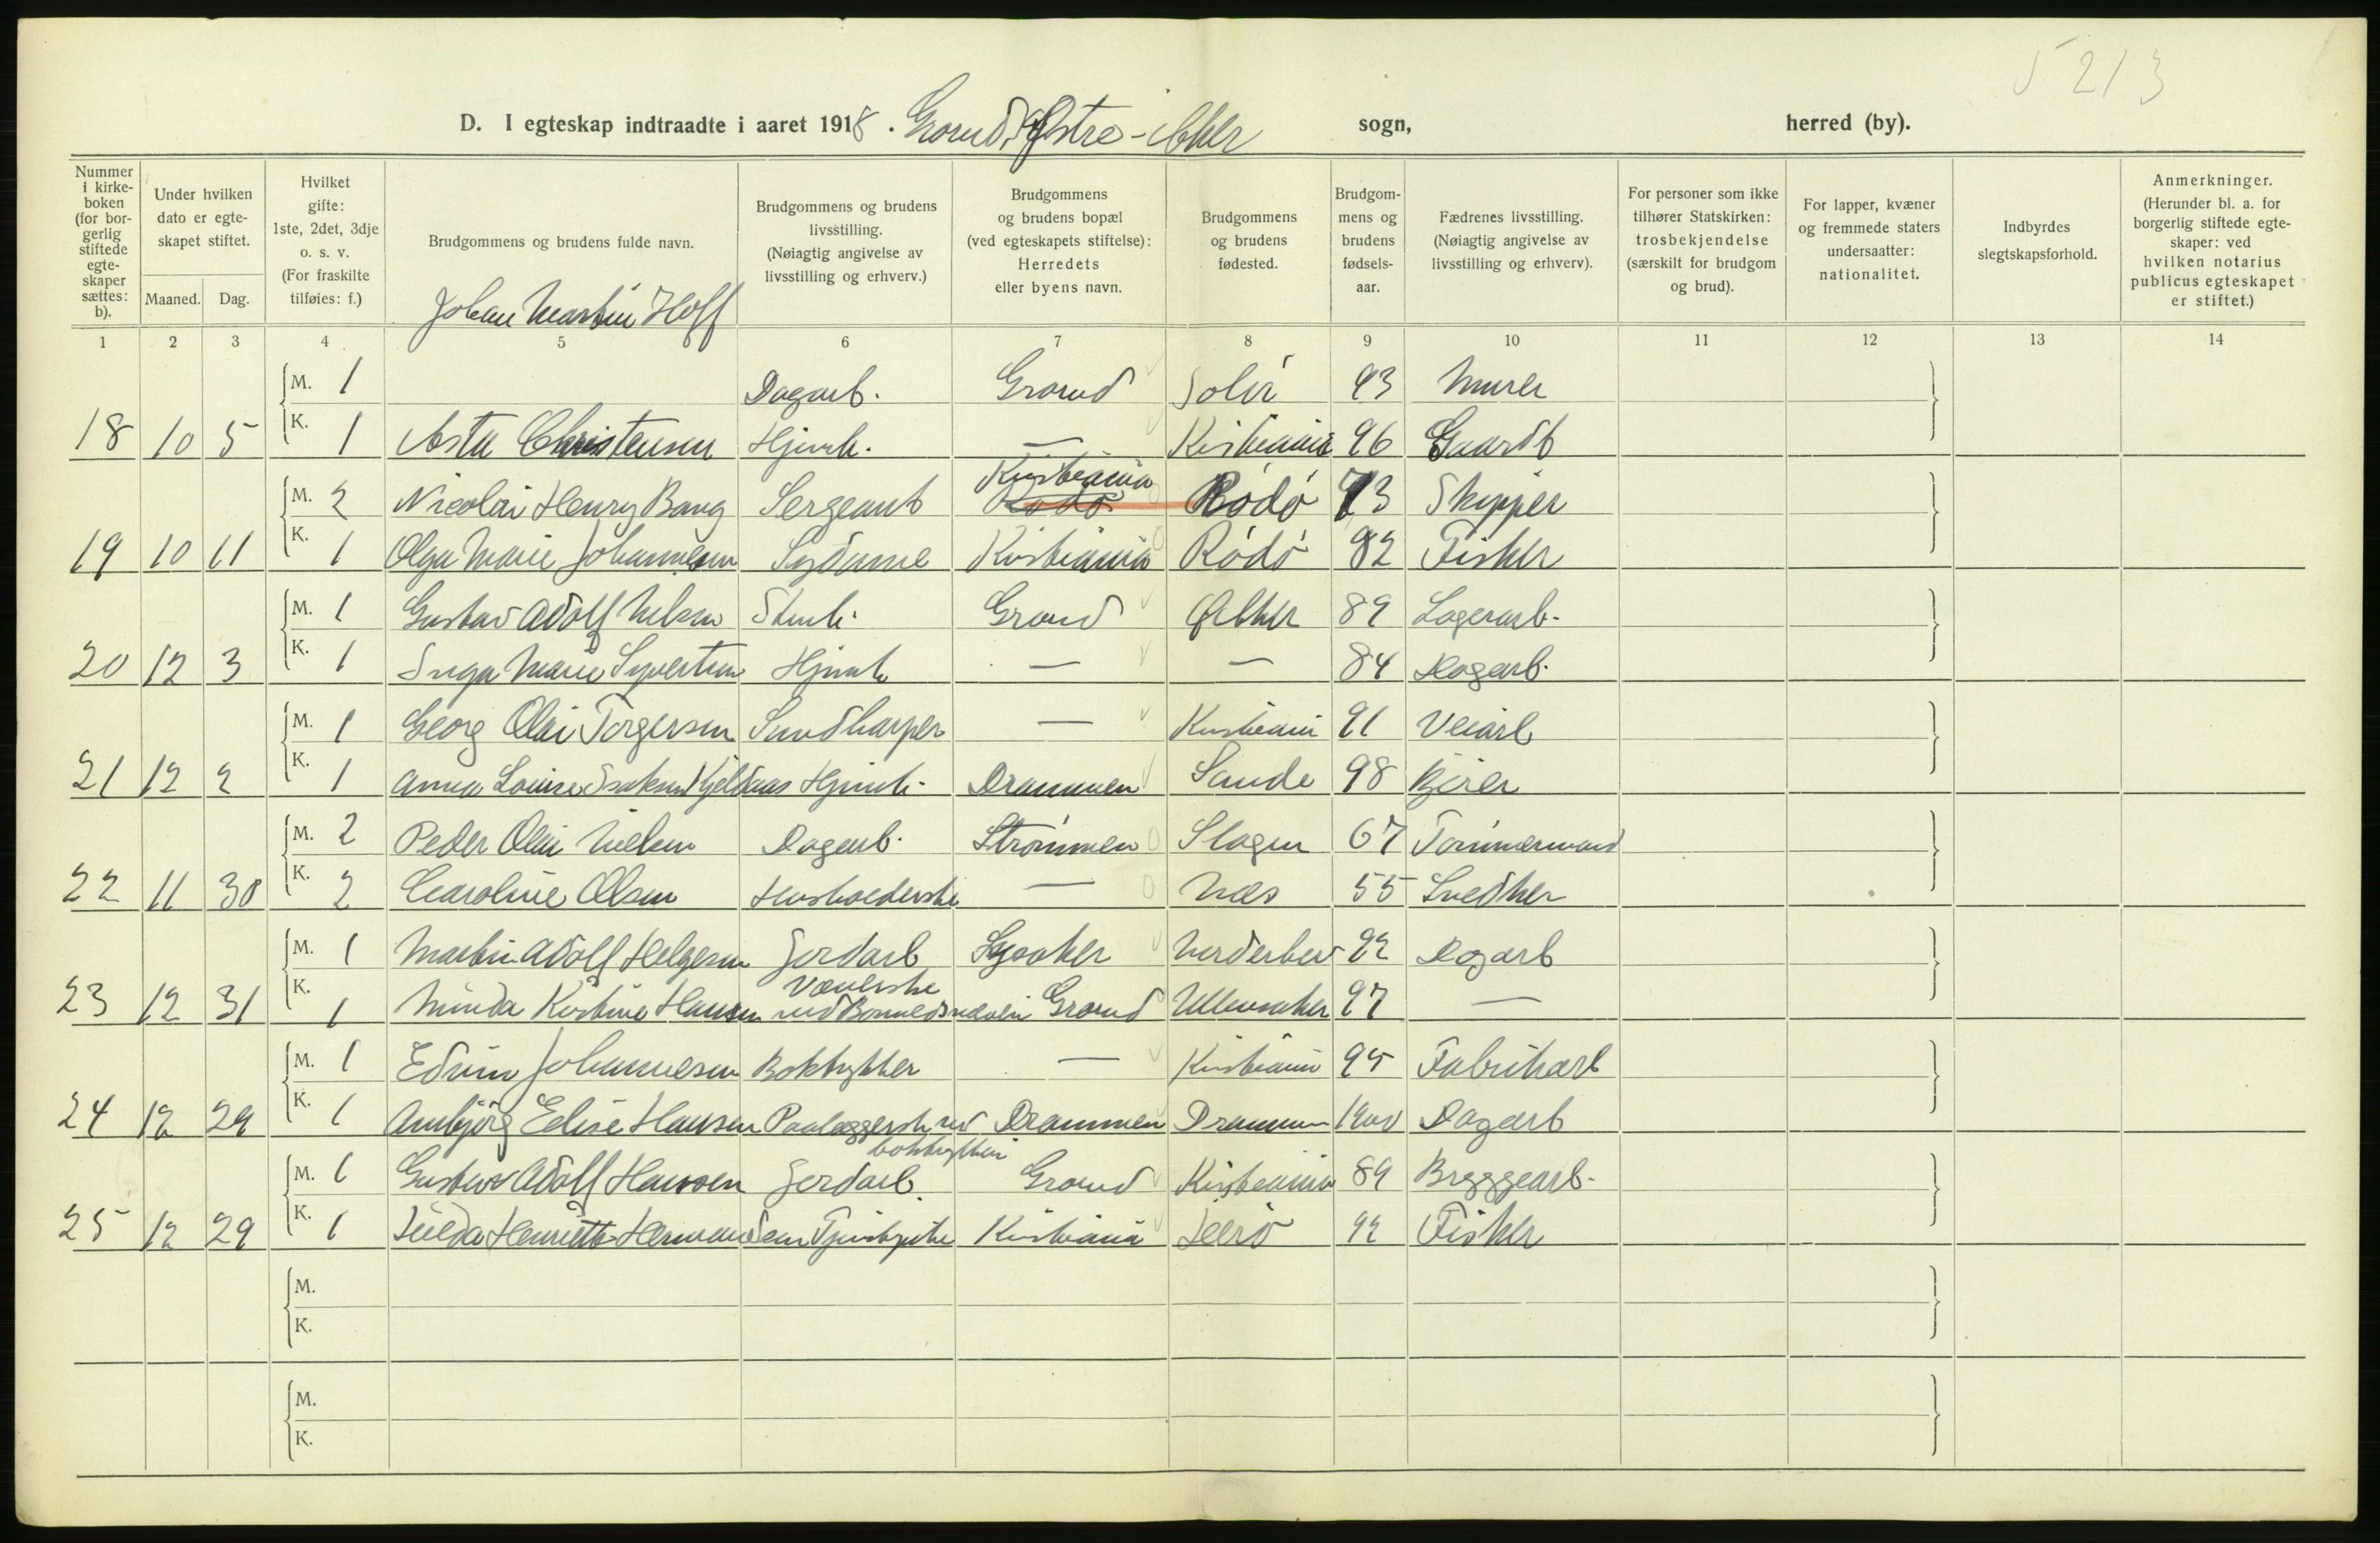 5213
D. I egteskap indtraadte i aaret 1918. Grorud, Østre-Aker sogn, herred (by).
Nummer i kirke-boken (for bor-gerlig stiftede egte-skaper sættes: b).
Under hvilken dato er egte-skapet stiftet.
Maaned. Dag.
Hvilket gifte: 1ste, 2det, 3dje o. s. v. (For fraskilte tilføies: f.)
Brudgommens og brudens fulde navn.
Brudgommens og brudens livsstilling. (Nøiagtig angivelse av livsstilling og erhverv.)
Brudgommens og brudens bopæl (ved egteskapets stiftelse): Herredets eller byens navn.
Brudgommens og brudens fødested.
Brudgom-mens og brudens fødsels-aar.
Fædrenes livsstilling. (Nøiagtig angivelse av livsstilling og erhverv).
For personer som ikke tilhører Statskirken: trosbekjendelse (særskilt for brudgom og brud).
For lapper, kvæner og fremmede staters undersaatter: nationalitet.
Indbyrdes slegtskapsforhold.
Anmerkninger. (Herunder bl. a. for borgerlig stiftede egte-skaper: ved hvilken notarius publicus egteskapet er stiftet.)
1 2 3 4 5 6 7 8 9 10 11 12 13 14
Johan Martin Hoff
M. 1 Dagarb. Grorud Solør 93 Murer
18 10 5 K. 1 Asta Christensen Hjemh. — Kristiania 96 Gaardb
Kristiania
M. 2 Nicolai Henry Bang Sergeant Rødø Rødø 73 Skipper
19 10 11 K. 1 Olga Marie Johannesen Sydame Kristiania Rødø 82 Fisker
M. 1 Gustav Adolf Nilsen Stenh. Grorud Aker 89 Lagerarb.
20 12 3 K. 1 Inga Marie Syvertsen Hjemh — — 84 Dagarb.
M. 1 Georg Olai Torgersen — Kristiania 91 Veiarb
21 12 2 K. 1 Anna Louise Isaksen Kjeldaas Hjemh. Drammen Sande 98 Eier
M. 2 Peder Olai Nielsen Dagarb. Strømmen Slagen 67 Tømmermand
22 11 30 K. 2 Caroline Olsen Husholderske — Næs 55 Snedker
M. 1 Martin Adolf Helgesen Jordarb Lysaker 92 Dagarb
Væverske
23 12 31 K. 1 Minda Kristine Hansen ved Bomuldsvæveri Grorud Ullensaker 97 —
M. 1 Edvin Johannesen Boktrykker — Kristiania 95 Fabrikarb
24 12 29 K. 1 Annbjørg Elise Hansen Paalæggersk ved Drammen Drammen 1900 Dagarb
boktrykkeri
M. 1 Gustav Adolf Hansen Jordarb. Grorud Kristiania 89 Bryggearb.
25 12 29 K. 1 Hilda Henriette Hermandsen Tjenstpike Kristiania 92 Fisker
M.
K.
M.
K.